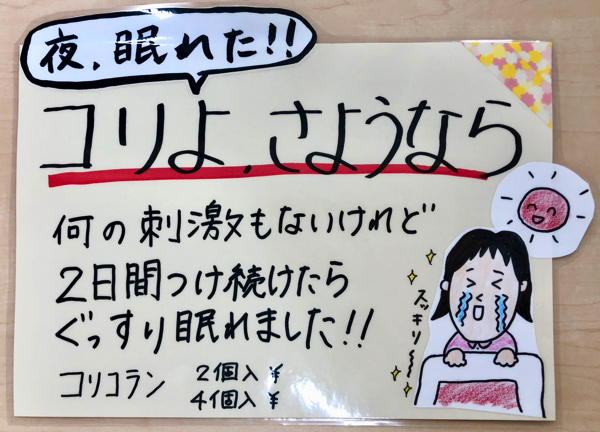 夜、眠れた!!
コリよ、さようなら
何の刺激もないけれど
2日間つけ続けたら
ぐっすり眠れました!!
スッキリ〜〜
コリコラン 2個入 ¥
4個入 ¥